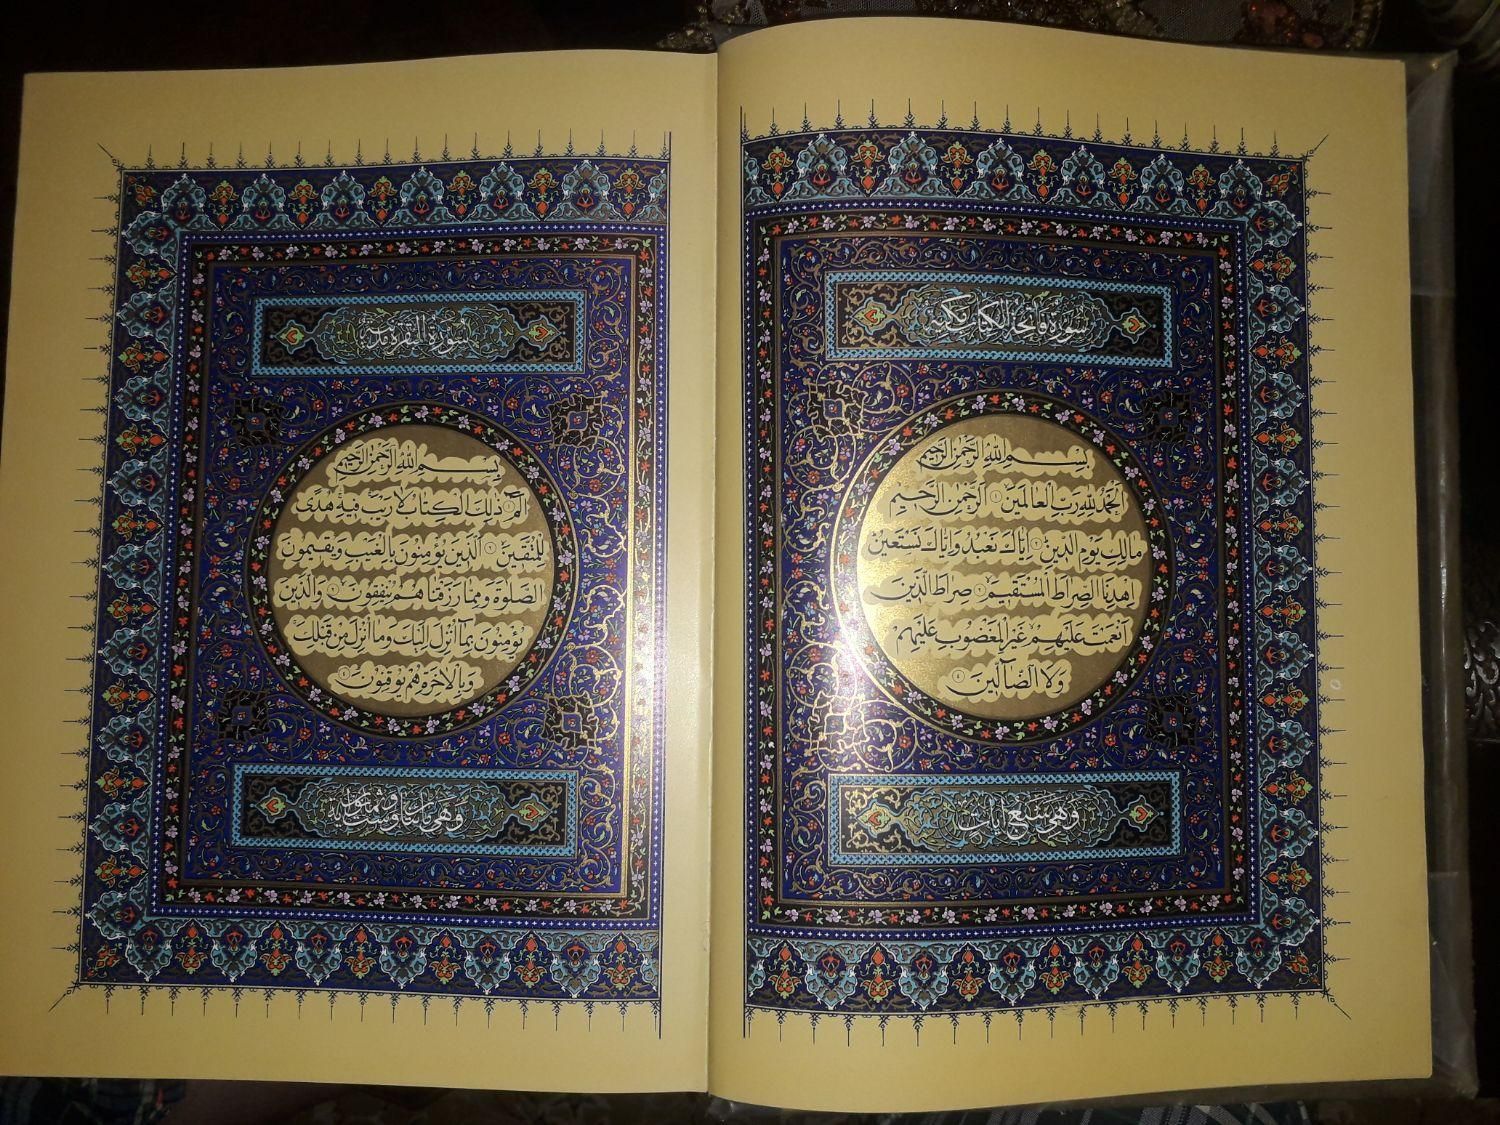 سورة فاتحة الكتاب مكية
بسم الله الرحمن الرحيم
الحمد لله رب العالمين ۱ الرحمن الرحيم
مالك يوم الدين ۲ إياك نعبد وإياك نستعين
اهدنا الصراط المستقيم ۳ صراط الذين
أنعمت عليهم غير المغضوب عليهم
ولا الضالين ٤
وهي سبع آيات
سورة البقرة مدنية
بسم الله الرحمن الرحيم
الم ۱ ذلك الكتاب لا ريب فيه هدى
للمتقين ۲ الذين يؤمنون بالغيب ويقيمون
الصلوة ومما رزقناهم ينفقون ۳ والذين
يؤمنون بما أنزل إليك وما أنزل من قبلك
وبالآخرة هم يوقنون ٤
وهي مائتا وست وثمانون آية